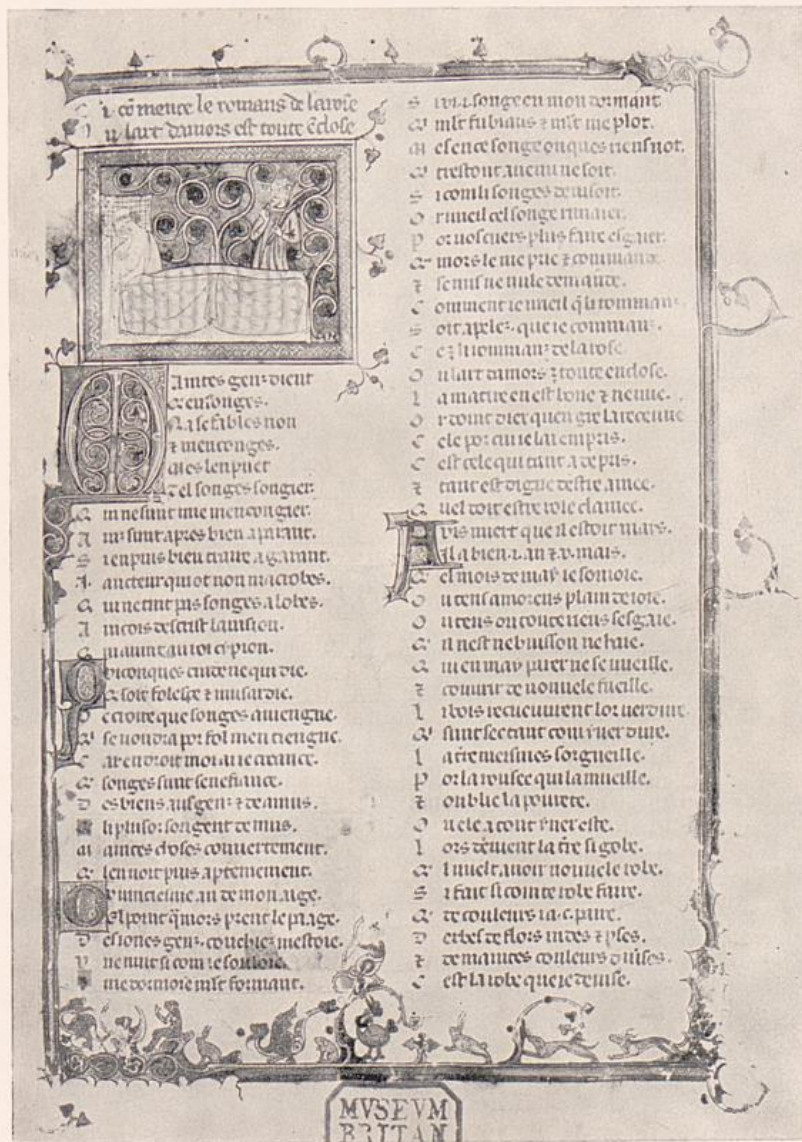 Ci cōmence le romans de la rose
Ou lart damors est toute ēclose
Maintes genz dient
q̄ en songes.
Na se fables non
⁊ menconges.
Mes len puet
tel songes songier.
Q i ne sunt mie mencongier.
A inz sunt apres bien aparant.
S i en puis bien traire a garant.
A . aucteur qui ot non macrobes.
Q ui ne tint pas songes a lobes.
A incois descrist la vision.
Q i avint au roi cypion.
Quiconques cuide ne qui die.
Q̄ soit folece ⁊ musardie.
D e croire que songes aviengne.
Q̄ se voudra por fol men tiengne.
C ar endroit moi ai ie creance.
Q̄ songes sunt senefiance.
D es biens aus genz ⁊ des anuis.
li plusor songent de nuis.
M aintes choses couvertement.
Q̄ len voit puis aptement.
O u vinctiesme an de mon aage.
El point q̄ mors prent le paage.
D es iones genz. couchiez mestoie.
V ne nuit si com ie souloie.
me dormoie mlt forment.
S i vi .i. songe en mon dormant
Q̄ mlt fu biaus ⁊ mlt me plot.
M es en ce songe onques riens not.
Q̄ trestout avenu ne soit.
S i com li songes devisoit.
O r vueil cel songe rimaier.
P or vos cuers plus faire esgaier.
Q̄ mors le me prie ⁊ commande.
⁊ se nus ne nule demande.
C omment ie vueil q̄ li rommanz
S oit apelez. que ie commanz.
C e ⁊ li rommanz de la rose
O u lart damors ⁊ toute enclose.
L a matire en est bone ⁊ neuve.
O r doint diex quen gre la receuve
C ele por cui ie lai empris.
C est cele qui tant a de pris.
⁊ tant est digne destre amee.
Q uel doit estre rose clamee.
Avis miert que il estoit mars.
Il a bien .i. an ⁊ .v. mais.
Q̄ el mois de may ie sonioie.
O u tens amoreus plain de ioie.
O u tens ou toute riens sesgaie.
Q̄ il nest ne buisson ne haie.
Q ui en may parer ne se vueille.
⁊ couvrir de nouvele fueille.
L i bois recuevrent lor verdure
Q̄ sunt sec tant com yver dure.
L a t're meismes sorgueille.
P or la rousee qui la mueille.
⁊ oublie la povrete.
O u ele a tout yver este.
L ors devient la t're si gobe.
Q̄ l vuelt avoir nouvele robe.
S i fait si cointe robe faire.
Q̄ de couleurs i a .c. paire.
D erbes de flors indes ⁊ pses.
⁊ de maintes couleurs div'ses.
C est la robe que ie devise.
MVSEVM
BRITAN